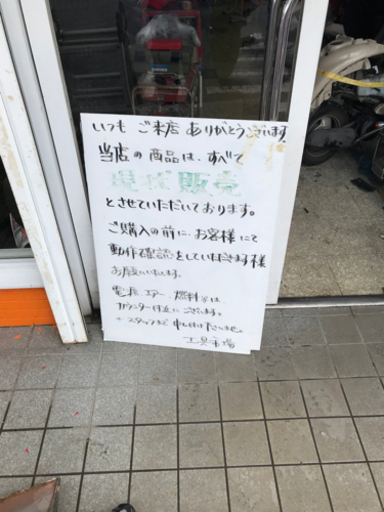 いつも ご来店 ありがとうございます
当店の商品は、すべて
現状販売
とさせていただいております。
ご購入の前に、お客様にて
動作確認をしていただきます様
お願いいたします。
電源 エアー 燃料等は、
カウンター付近にございます。
スタッフまで申し付けくださいませ
工具市場